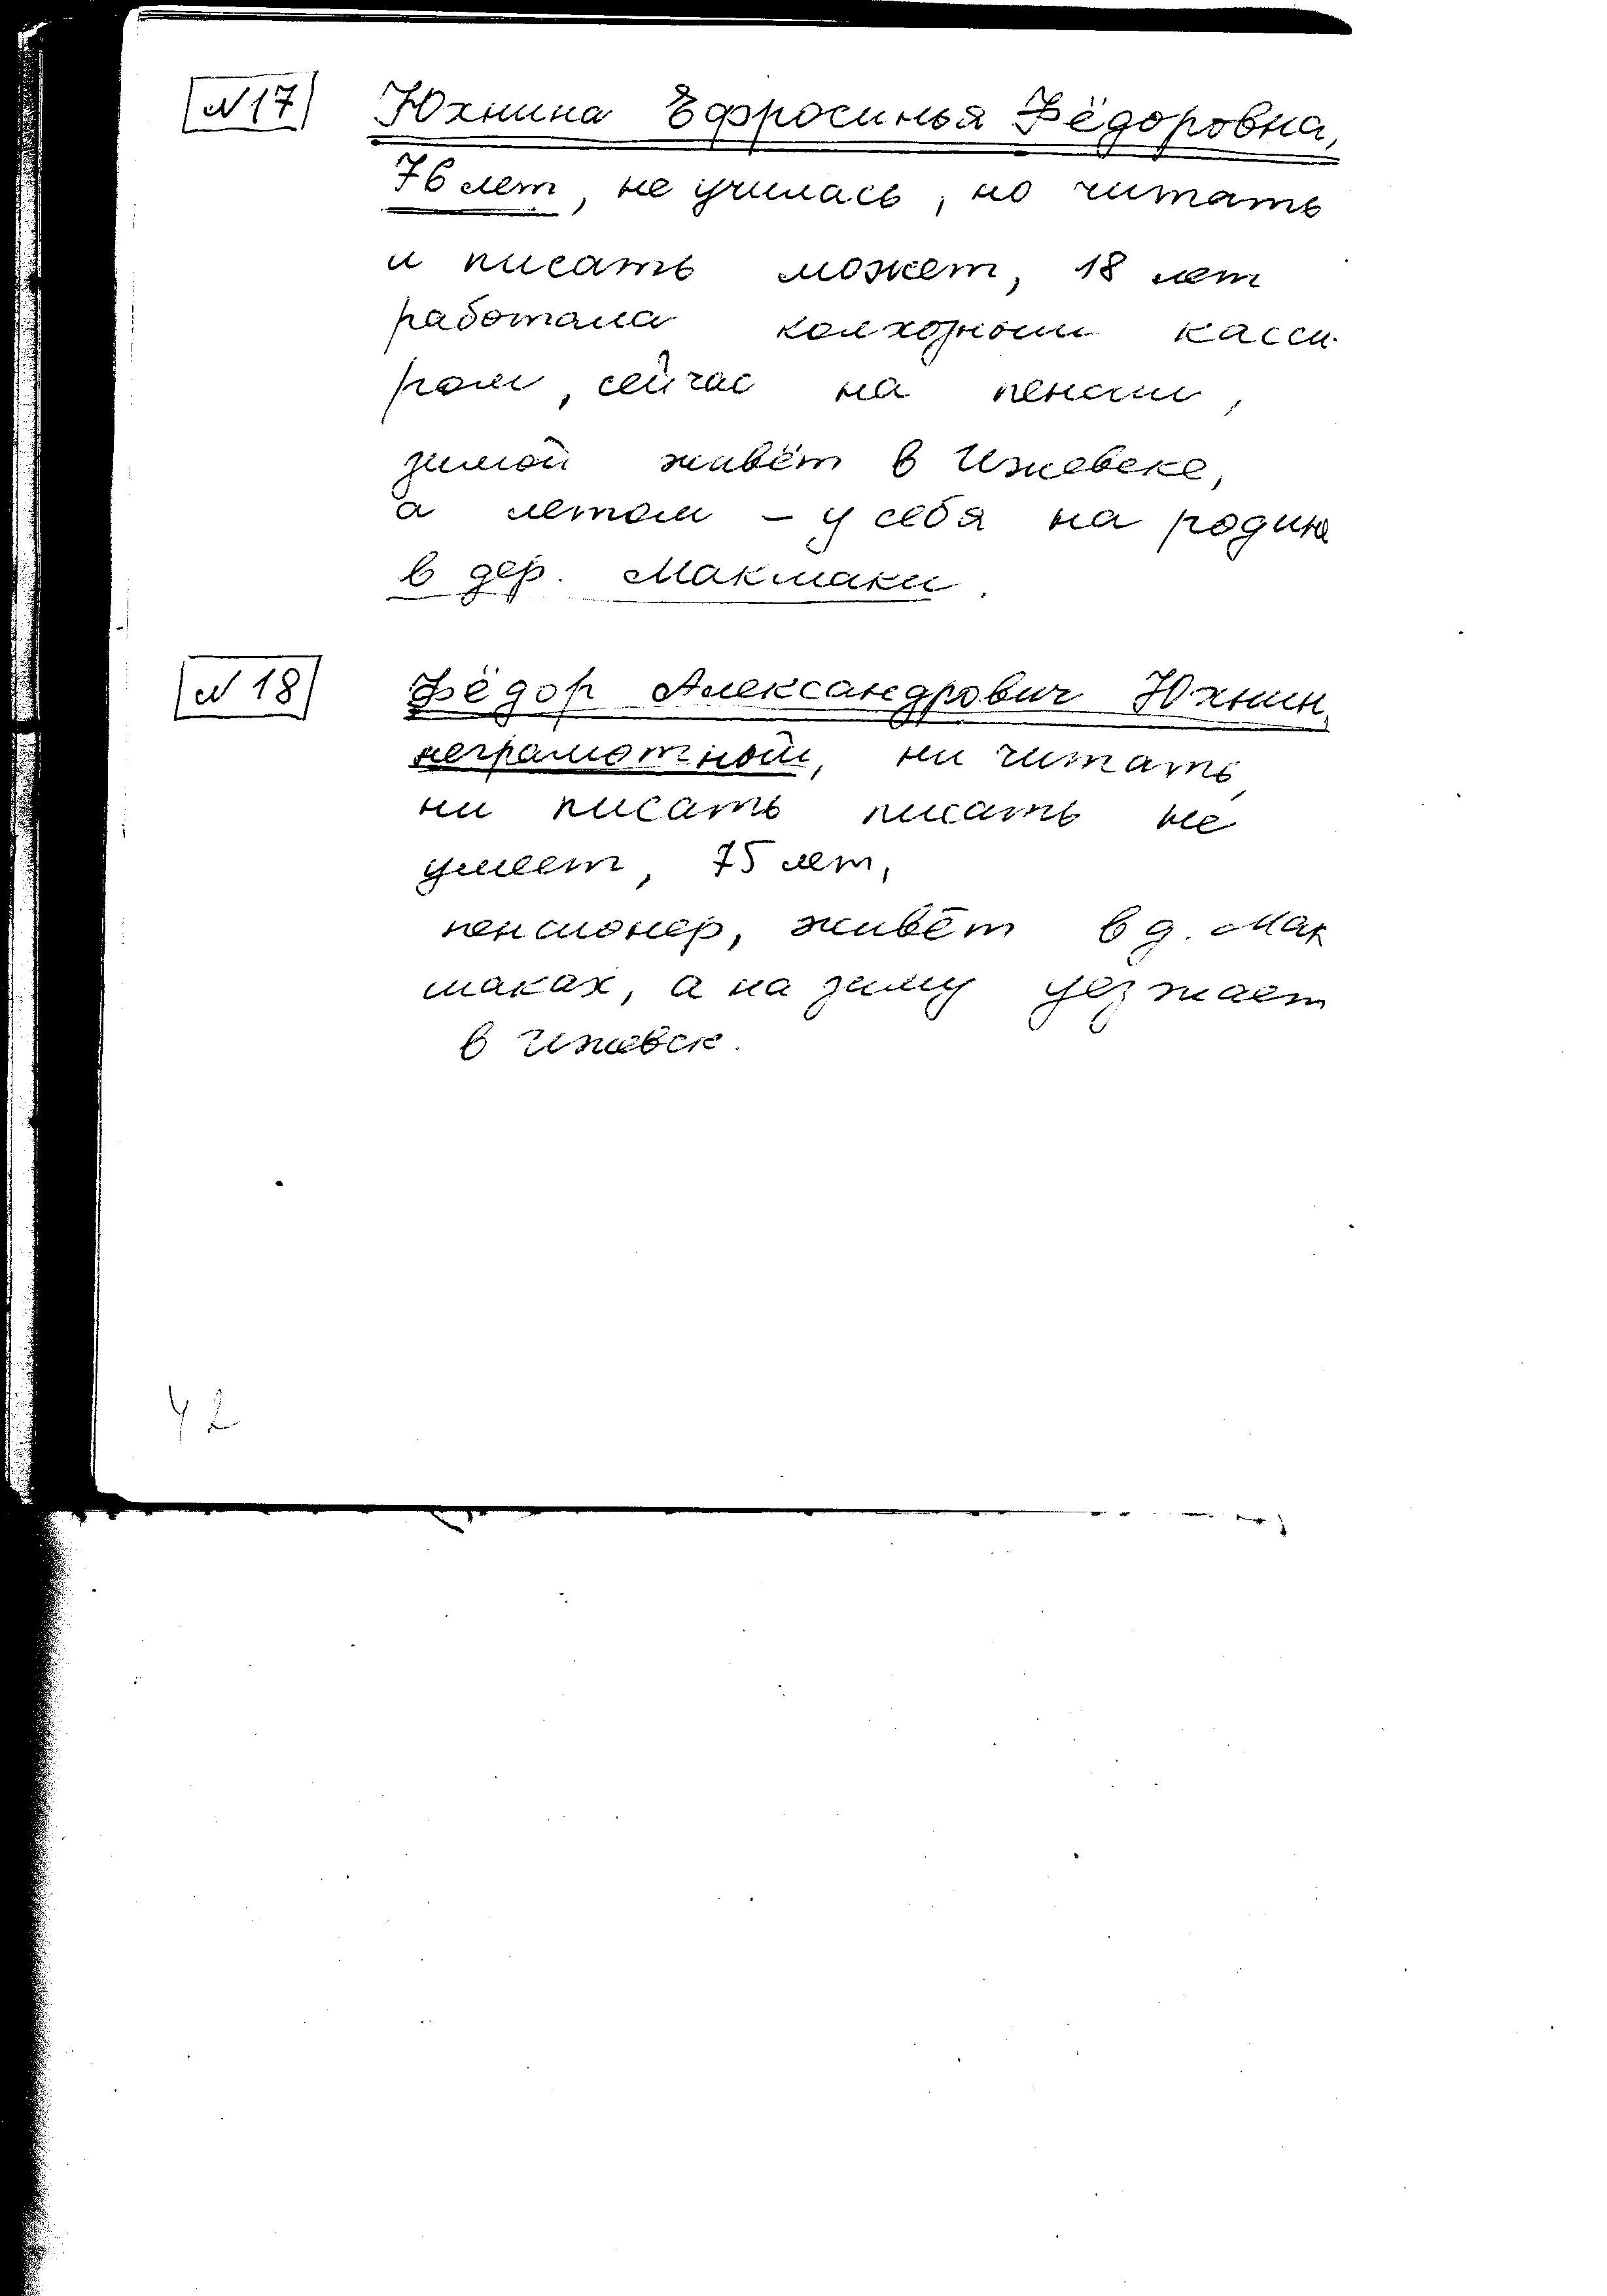 N 17
Юхнина Ефросинья Фёдоровна,
76 лет, не училась, но читать
и писать может, 18 лет
работала колхозным касси-
ром, сейчас на пенсии,
зимой живёт в Ижевске,
а летом – у себя на родине
в дер. Макшаки.
N 18
Фёдор Александрович Юхнин,
неграмотный, ни читать,
ни писать писать не
умеет, 75 лет,
пенсионер, живёт в д. Мак
шаках, а на зиму уезжает
в Ижевск.
42